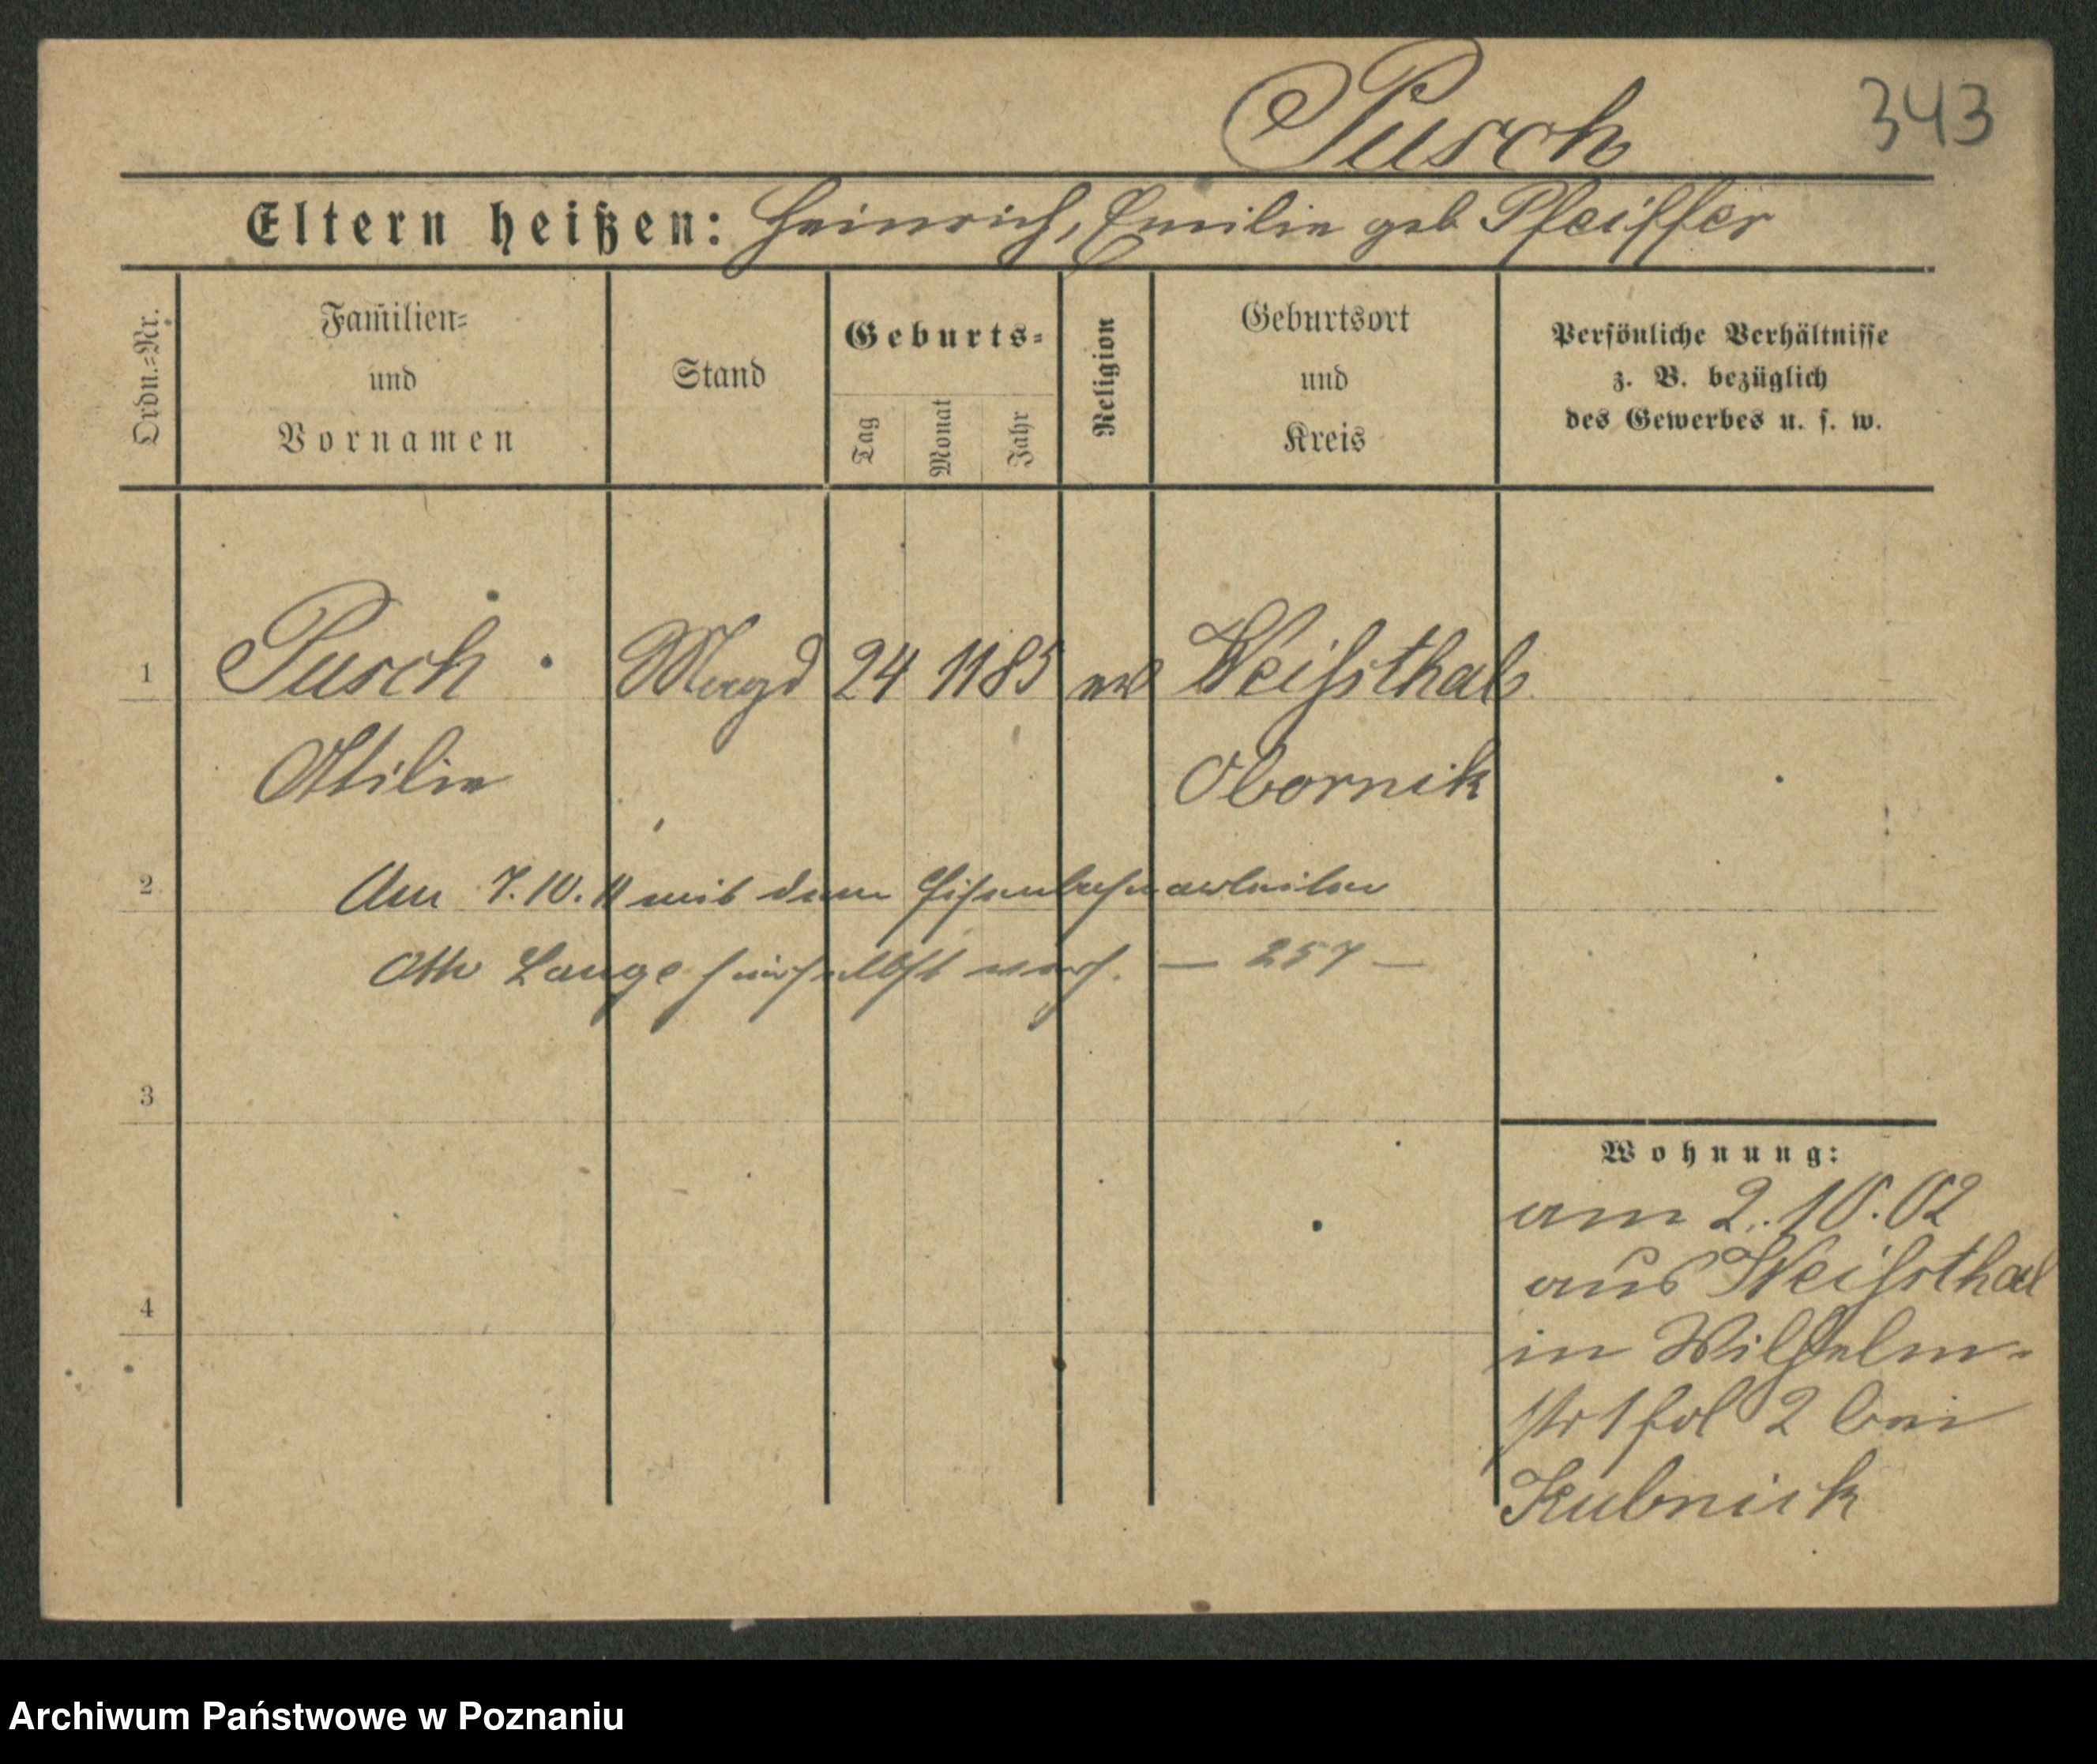 Pusch 343
Eltern heißen: Heinrich, Emilie geb Pfeiffer
Ordn.=Nr.
Familien=
und
Vornamen
Stand
Geburts=
Tag
Monat
Jahr
Religion
Geburtsort
und
Kreis
Persönliche Verhältnisse
z. B. bezüglich
des Gewerbes u. s. w.
1 Pusch Magd 24 11 85 ev Weißthal
Ottilie Obornik
2 Am 7.10.11 mit dem Eisenbahnarbeiter
Otto Lange hierselbst verh. — 257 —
3
4
Wohnung:
am 2.10.02
aus Weißthal
in Wilhelm-
str 1 fol 2 bei
Kubnick
Archiwum Państwowe w Poznaniu